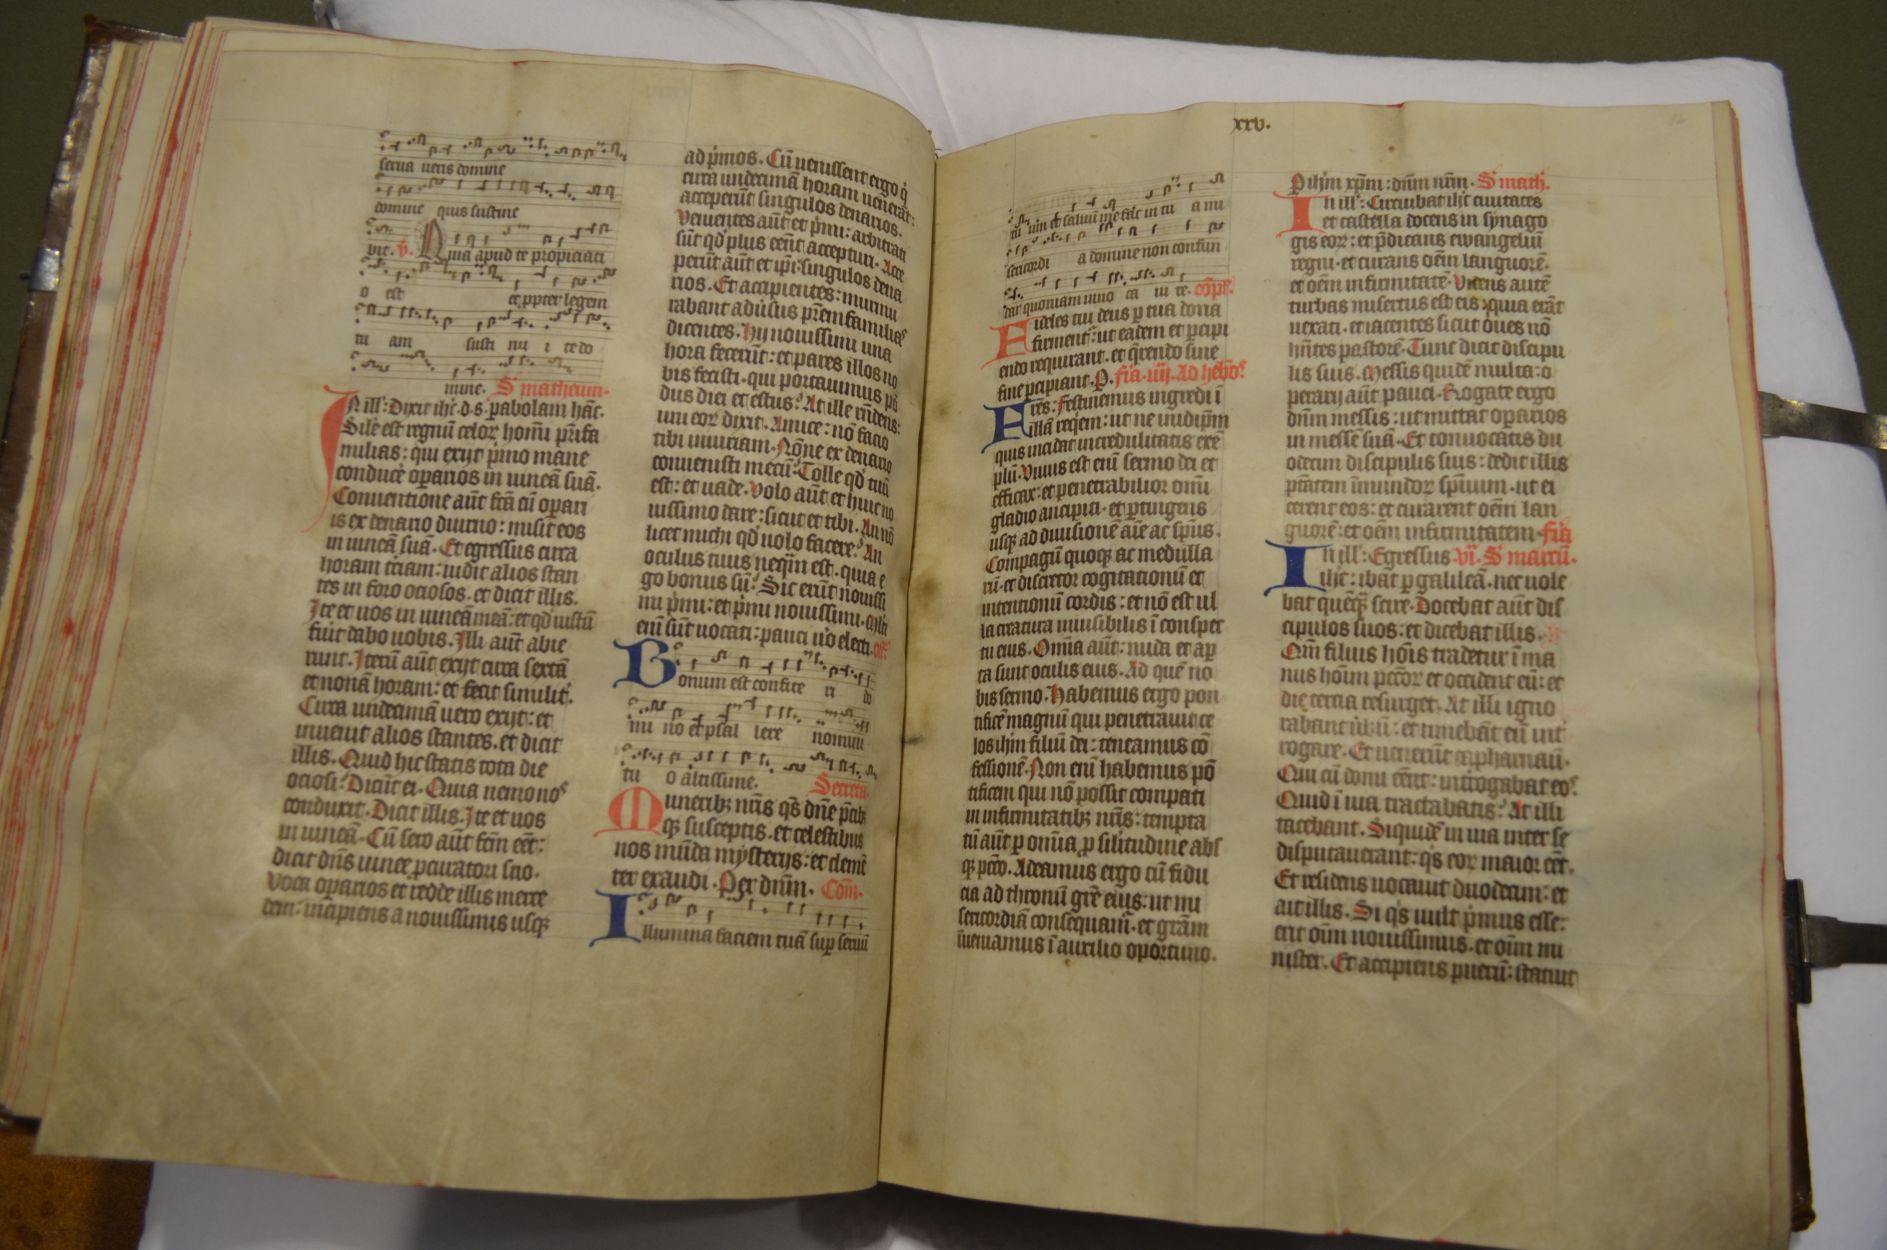 seruaueris domine
domine quis sustine
bit. v. Quia apud te propiciati
o est et ꝓpter legem
tu am susti nu i te do
mine. S matheum.
In ill: Dixit ihc d. s. pabolam hāc.
Sile est regnū celoꝝ homī pr̄ifa
milias: qui exijt p̄mo mane
conduc̄e oꝑarios in uineā suā.
Conuentione aūt fcā cū oꝑari
is ex denario diurno: misit eos
in uineā suā. Et egressus circa
horam tciam: uidit alios stan
tes in foro ociosos. et dicit illis.
Ite et uos in uineā meā: et qd iustū
fuit dabo uobis. Illi aūt abie
runt. Iterū aūt exijt circa sextā
et nonā horam: et fecit similit.
Circa undecimā uero exijt: et
inuenit alios stantes. et dicit
illis. Quid hic statis tota die
ociosi? Dicūt ei. Quia nemo nos
conduxit. Dicit illis. Ite et uos
in uineā. Cū sero aūt fcm eēt:
dicit dn̄s uinee ꝓcuratori suo.
Voca oꝑarios et redde illis merce
dem: incipiens a nouissimis usqꝫ
ad p̄mos. Cū uenissent ergo q̇
circa undecimā horam uenerāt:
acceperūt singulos denarios.
Venientes aūt et p̄mi: arbitrati
sūt qd plus eēnt accepturi. Acce
perūt aūt et ip̄i singulos dena
rios. Et accipientes: murmu
rabant adūsus pr̄em familias
dicentes. Hij nouissimi una
hora fecerūt: et pares illos no
bis fecisti. qui portauimus pō
dus diei et estus? At ille rn̄dens:
uni eoꝝ dixit. Amice: nō facio
tibi iniuriam. Nōne ex denario
conuenisti mecū? Tolle qd tuū
est: et uade. Volo aūt et huic no
uissimo dare: sicut et tibi. An nō
licet michi qd uolo facere? An
oculus tuus neq̄m est. quia e
go bonus sū? Sic erūt nouissi
mi p̄mi: et p̄mi nouissimi. Mlti
eni sūt uocati: pauci u̇o electi. off.
Bonum est confite ri do
mi no et psal lere nomini
tu o altissime. Secreta.
Muneribꝫ nr̄is q̄s dn̄e p̄cibꝫ
qꝫ susceptis. et celestibus
nos mūda mysterijs: et clemē
ter exaudi. Per dn̄m. Com̄.
Illumina faciem tuā suꝑ seruū
xxv.
tū um et saluū me fac in tu a mi
sericordi a domine non confun
dar quoniam inuo ca ui te. cōpl.
Fideles tui deus ꝑ tua dona
firment: ut eadem et ꝑcipi
endo requirant. et q̄rendo sine
fine ꝑcipiant. P. fīa. iiij. Ad hebos.
Fres: Festinemus ingredi ī
illā reqiem: ut ne in idip̄m
quis incidat incredulitatis exē
plū. Viuus est eni sermo dei et
efficax: et penetrabilior om̄i
gladio ancipiti. et ꝑtingens
usqꝫ ad diuisionē aīe ac spūs.
Compagū quoqꝫ ac medulla
rū. et discretor cogitationū et
intentionū cordis: et nō est ul
la creatura inuisibilis ī conspec
tu eius. Om̄ia aūt: nuda et aꝑ
ta sunt oculis eius. Ad quē no
bis sermo. Habemus ergo pon
tificē magnū qui penetrauit ce
los ihm filiū dei: teneamus cō
fessionē. Non eni habemus pō
tificem qui nō possit compati
in infirmitatibꝫ nr̄is: tempta
tū aūt ꝑ om̄ia ꝓ similitudine abs
qꝫ pctō. Adeamus ergo cū fidu
cia ad thronū gr̄e eius: ut mi
sericordiā consequam̄. et grām
īueniamus ī auxilio oportuno.
P ihm xpm: dn̄m nr̄m. S math.
In ill: Circuibat ihc ciuitates
et castella docens in synago
gis eoꝝ: et p̄dicans ewangeliū
regni. et curans oēm languorē.
et oēm infirmitatē. Videns autē
turbas misertus est eis: quia erāt
uexati. et iacentes sicut oues nō
hn̄tes pastorē. Tunc dicit discipu
lis suis. Messis quidē multa: o
perarij aūt pauci. Rogate ergo
dn̄m messis: ut mittat oꝑarios
in messē suā. Et conuocatis du
odecim discipulis suis: dedit illis
p̄tātem īmundoꝝ spirituum. ut ei
cerent eos: et curarent oēm lan
guorē: et oēm infirmitatem. fīa
In ill: Egressus vi. S marcū.
ihc: ibat ꝑ galileā. nec uole
bat quēqꝫ scire. Docebat aūt dis
cipulos suos: et dicebat illis.
Qm̄ filius hōis tradetur ī ma
nus hoīm pctōꝝ et occident eū: et
die tercia resurget. At illi igno
rabant ūbū: et timebāt eū int̄
rogare. Et uenerūt capharnaū.
Qui cū domi eēnt: int̄rogabat eos.
Quid ī uia tractabatis? At illi
tacebant. Siquidē in uia inter se
disputauerant: q̇s eoꝝ maior eēt.
Et residens uocauit duodecim: et
ait illis. Si q̇s uult p̄mus esse:
erit oīm nouissimus. et oīm mi
nister. Et accipiens puerū: statuit